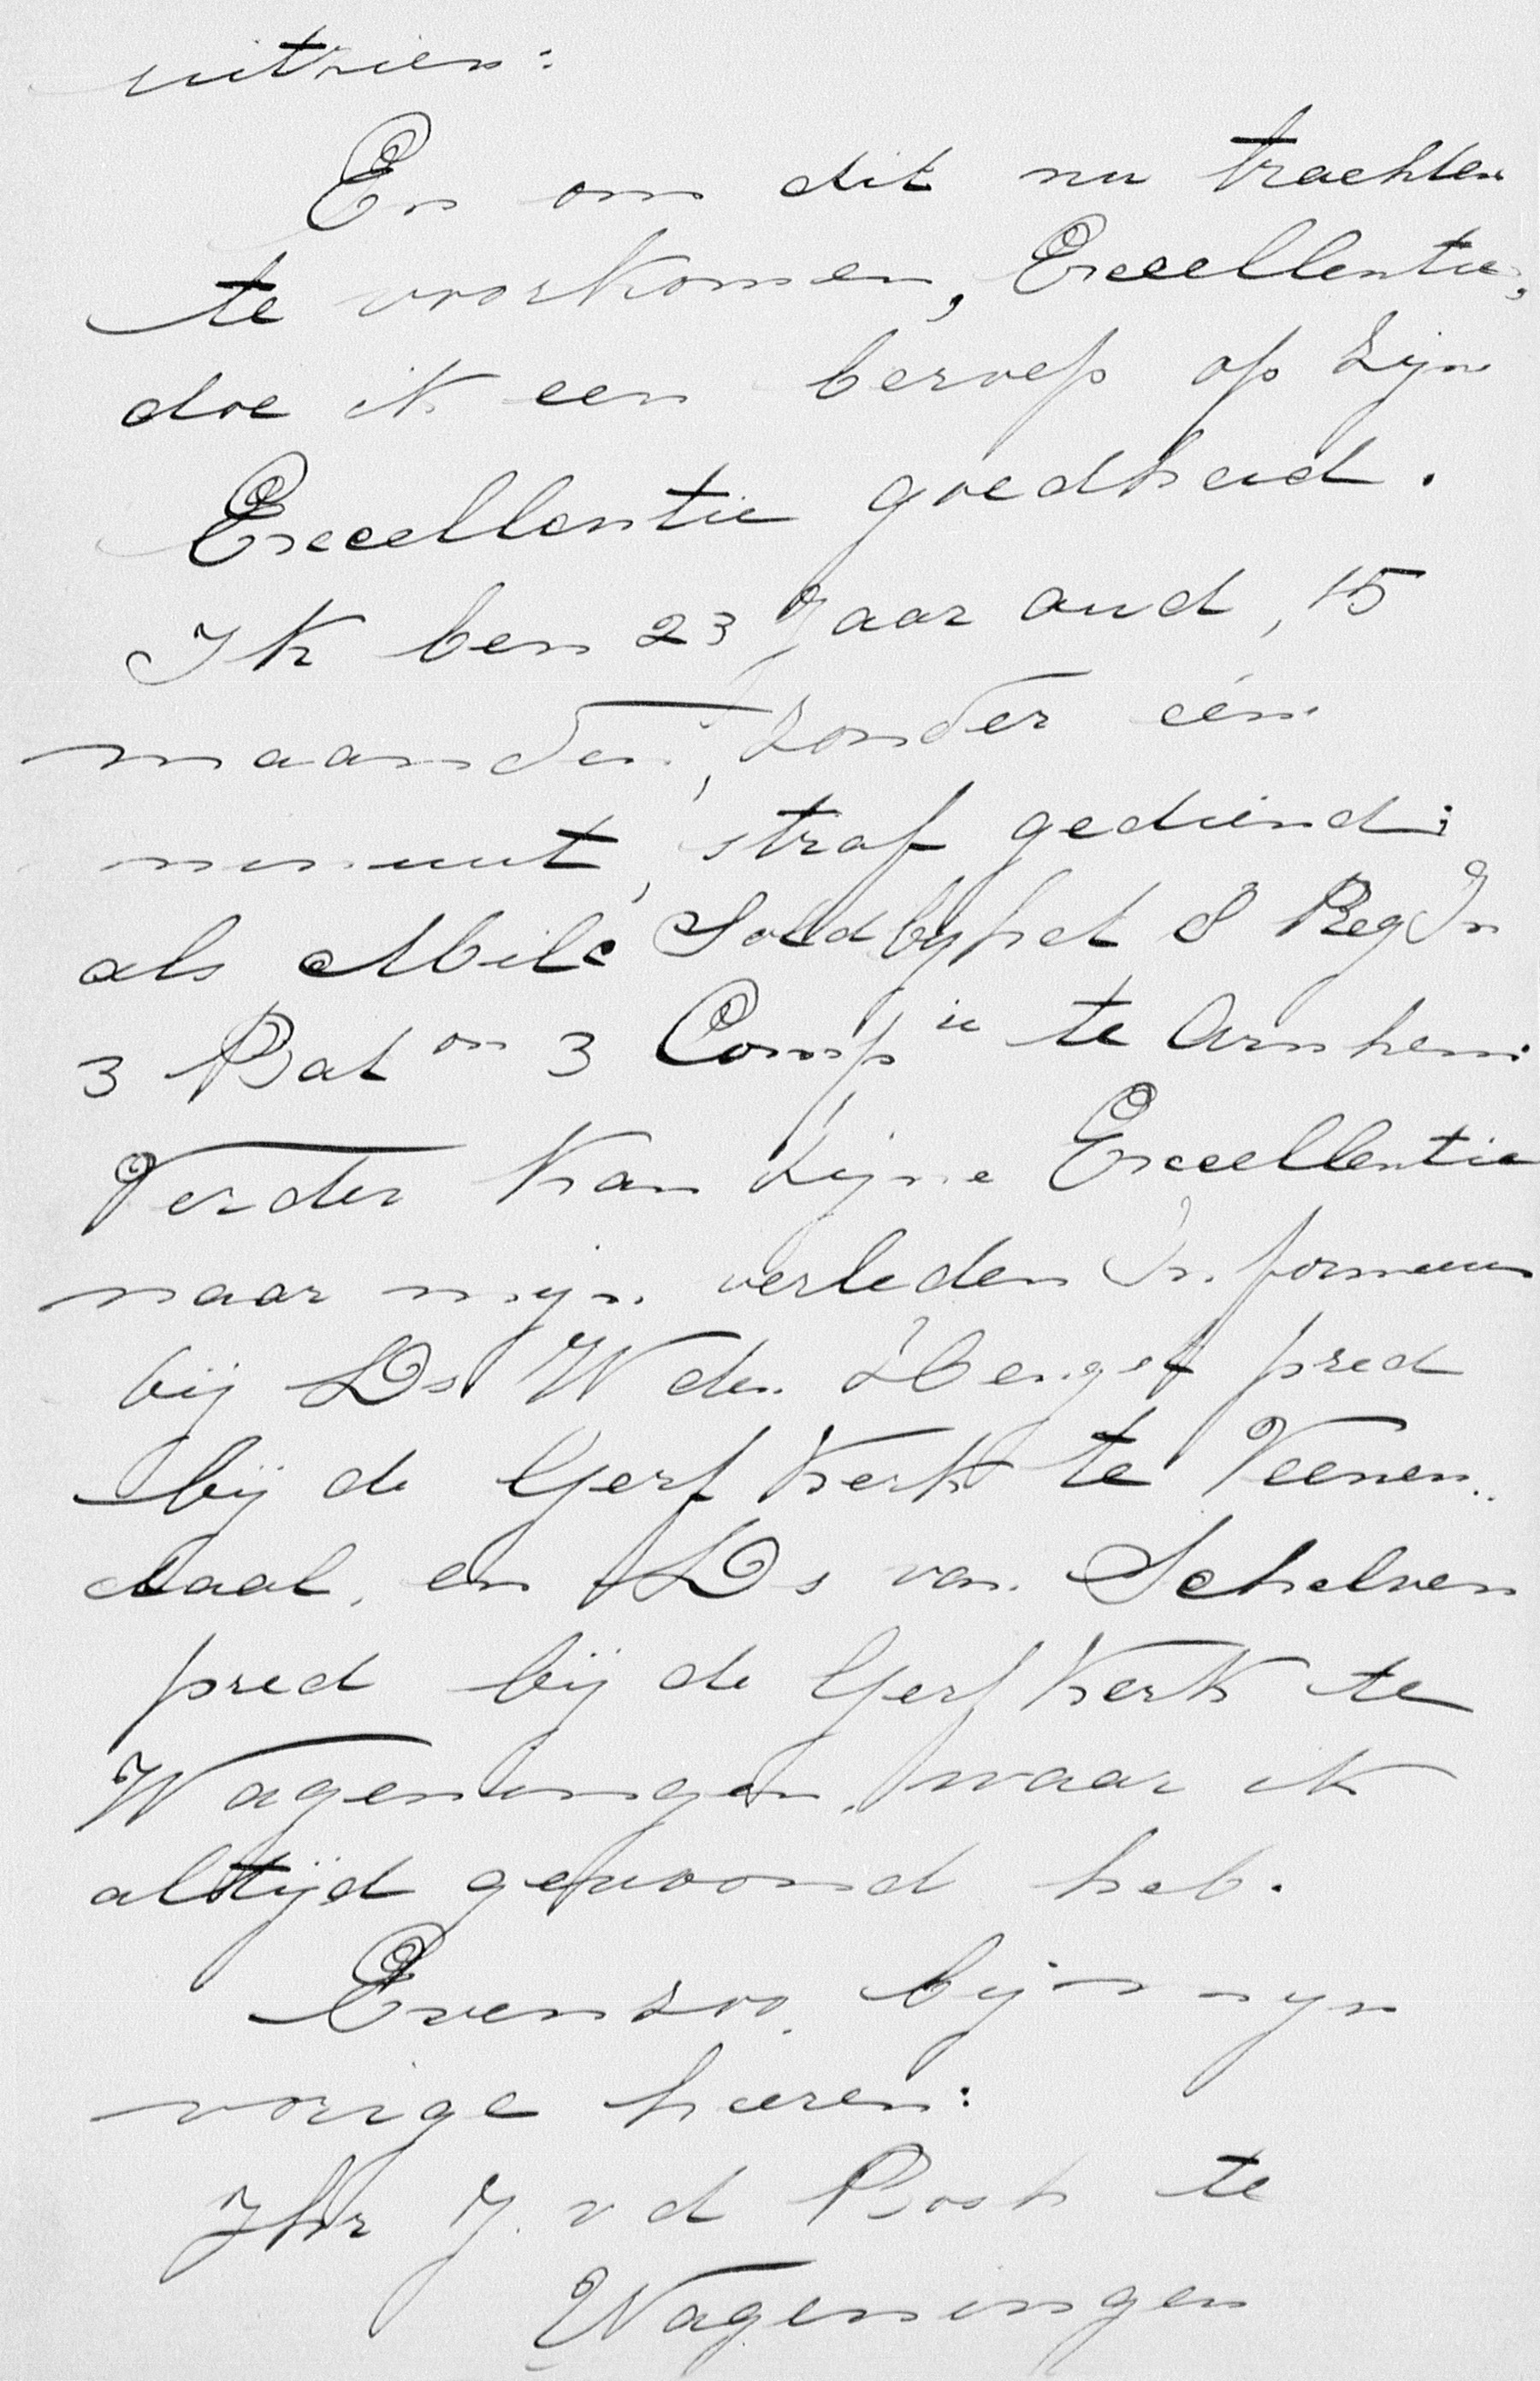 uitzien:
En om dit nu trachten
te voorkomen, Excellentie,
doe ik een beroep op Zijn
Excellentie goedheid.
Ik ben 23 Jaar oud, 15
maanden, zonder één
minuut, straf gediend:
als Milc Sold by het 8 Reg In
3 Bat on 3 Comp ie te Arnhem:
Verder kan Zijne Excellentie
naar mijn verleden Informeren
bij Ds W den Hengst pred
bij de Gerf Kerk te Veenen..
daal, en Ds van Schelven
pred bij de Gerf Kerk te
Wageningen, waar ik
altijd gewoond heb.
Evenzoo bij mijn
vorige heeren:
Jhr J. v d Bosch te
Wageningen